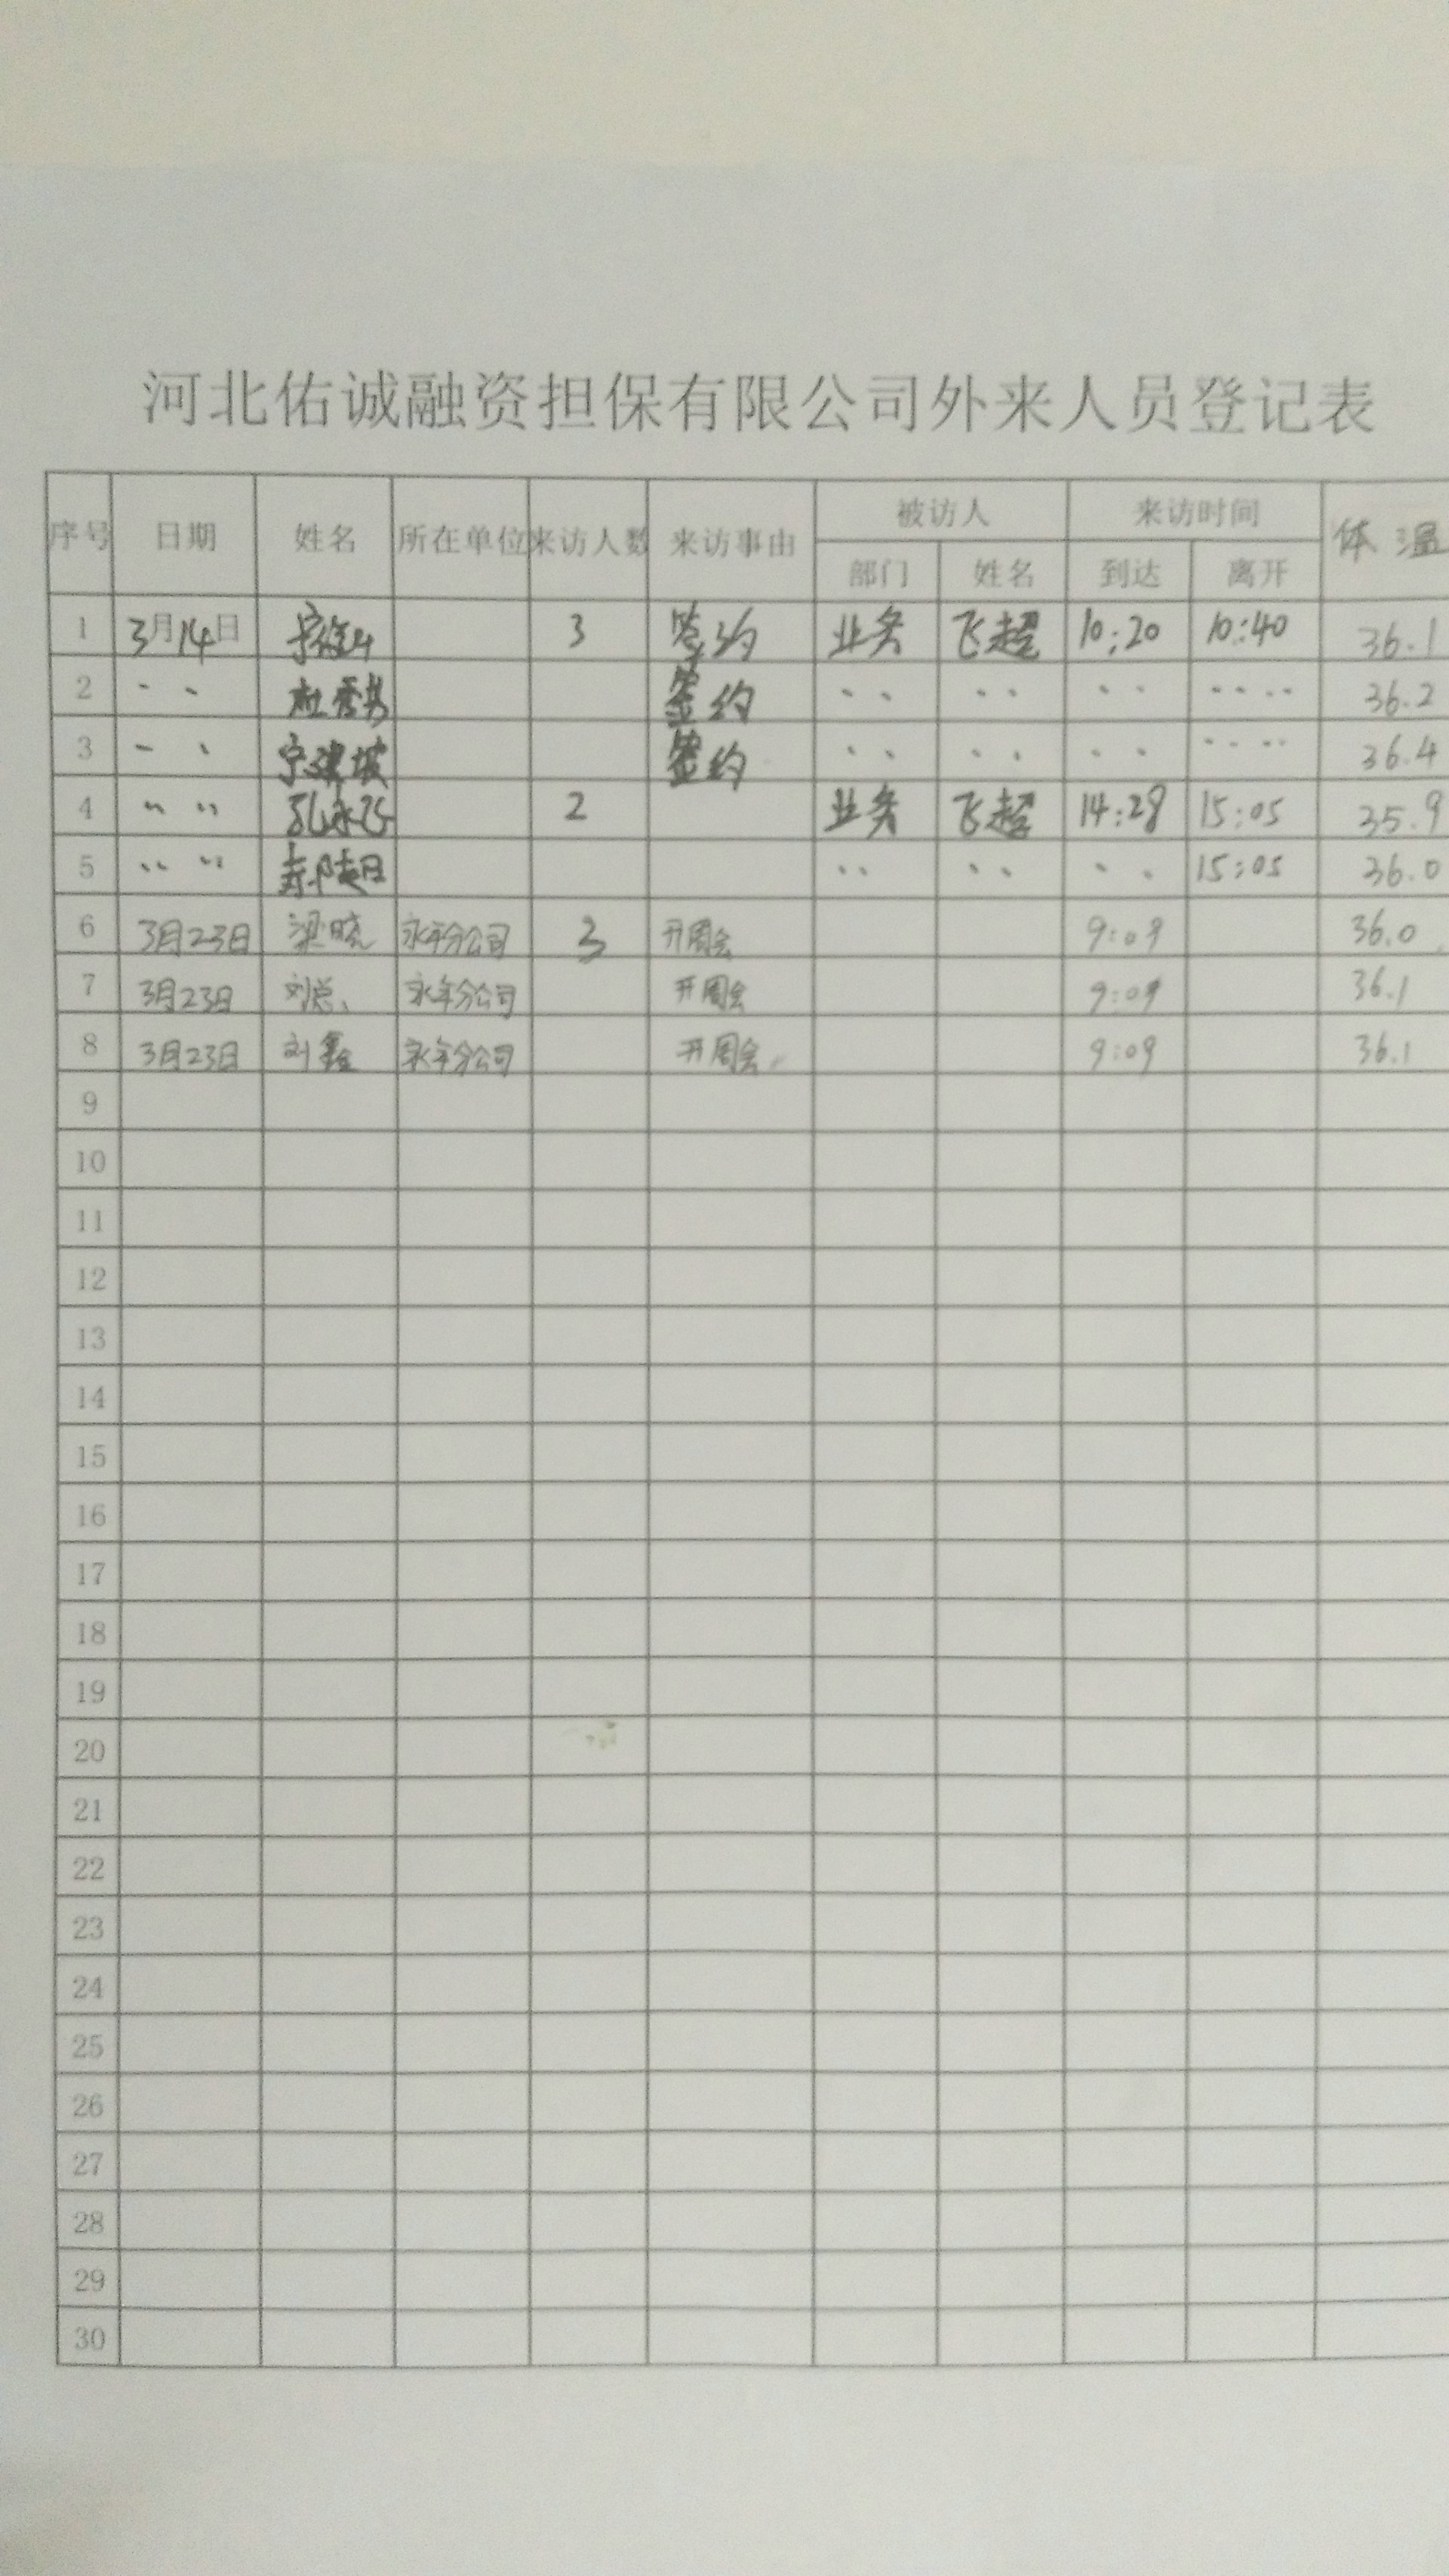 河北佑诚融资担保有限公司外来人员登记表
序号 日期 姓名 所在单位 来访人数 来访事由 被访人 来访时间 体温
部门 姓名 到达 离开
1 3月14日 3 签约 业务 飞超 10:20 10:40 36.1
2 〃 〃 杜秀书 签约 〃 〃 〃 〃 〃 36.2
3 〃 〃 宁建坡 签约 〃 〃 〃 〃 〃 36.4
4 〃 〃 2 业务 飞超 14:28 15:05 35.9
5 〃 〃 〃 〃 〃 15:05 36.0
6 3月23日 梁晓 永年分公司 3 开周会 9:09 36.0
7 3月23日 刘总 永年分公司 开周会 9:09 36.1
8 3月23日 刘鑫 永年分公司 开周会 9:09 36.1
9
10
11
12
13
14
15
16
17
18
19
20
21
22
23
24
25
26
27
28
29
30